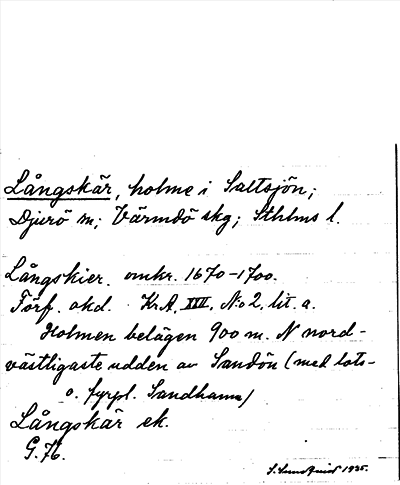 Långskär, holme i Saltsjön;
Djurö sn; Värmdö skg; Sthlms l.
Långskier. omkr. 1670-1700.
Förf. okd. KrA, XIII, No 2, lit. a.
Holmen belägen 900 m. N nord-
västligaste udden av Sandön (med lots-
o. fyrpl. Sandhamn)
Långskär ek.
G. 76.
1935.